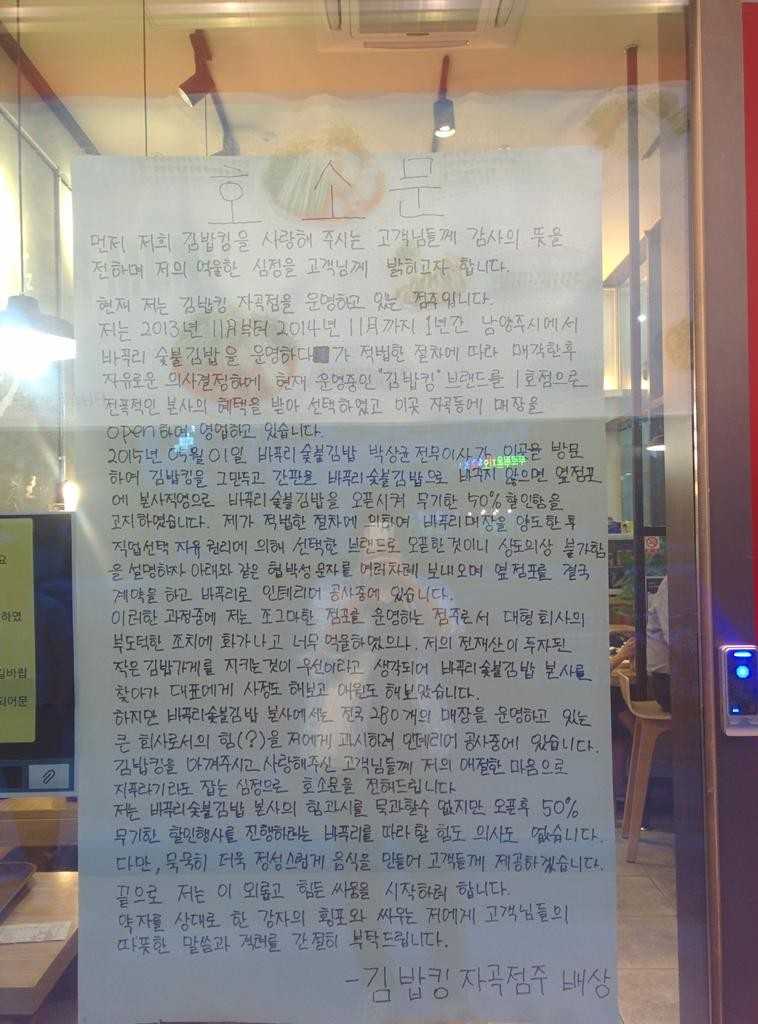 호소문
먼저 저희 김밥킹을 사랑해 주시는 고객님들께 감사의 뜻을
전하며 저의 억울한 심정을 고객님께 밝히고자 합니다.
현재 저는 김밥킹 자곡점을 운영하고 있는 점주입니다.
저는 2013년 11月부터 2014년 11月까지 1년간 남양주시에서
바푸리 숯불김밥을 운영하다가 적법한 절차에 따라 매각한후
자유로운 의사결정하에 현재 운영중인 "김밥킹" 브랜드를 1호점으로
전폭적인 본사의 혜택을 받아 선택하였고 이곳 자곡동에 매장을
open하여 영업하고 있습니다.
2015년 05월 01일 바푸리 숯불김밥 박상균 전무이사가 이곳을 방문
하여 김밥킹을 그만두고 간판을 바푸리숯불김밥으로 바꾸지 않으면 옆점포
에 본사직영으로 바푸리숯불김밥을 오픈시켜 무기한 50% 할인함을
고지하였습니다. 제가 적법한 절차에 의하여 바푸리매장을 양도한 후
직업선택 자유 권리에 의해 선택한 브랜드로 오픈한것이니 상도의상 불가함
을 설명하자 아래와 같은 협박성 문자를 여러차례 보내오며 옆점포를 결국
계약을 하고 바푸리로 인테리어 공사중에 있습니다.
이러한 과정중에 저는 조그마한 점포를 운영하는 점주로서 대형회사의
부도덕한 조치에 화가나고 너무 억울하였으나. 저의 전재산이 투자된
작은 김밥가게를 지키는것이 우선이라고 생각되어 바푸리숯불김밥 본사를
찾아가 대표에게 사정도 해보고 애원도 해보았습니다.
하지만 바푸리숯불김밥 본사에서는 전국 280개의 매장을 운영하고 있는
큰 회사로서의 힘(?)을 저에게 과시하려 인테리어 공사중에 있습니다.
김밥킹을 아껴주시고 사랑해주신 고객님들께 저의 애절한 마음으로
지푸라기라도 잡는 심정으로 호소문을 전해드립니다
저는 바푸리숯불김밥 본사의 힘과시를 묵과할수 없지만 오픈후 50%
무기한 할인행사를 진행하려는 바푸리를 따라할 힘도 의사도 없습니다.
다만, 묵묵히 더욱 정성스럽게 음식을 만들어 고객들께 제공하겠습니다.
끝으로 저는 이 외롭고 힘든 싸움을 시작하려 합니다.
약자를 상대로 한 강자의 횡포와 싸우는 저에게 고객님들의
따뜻한 말씀과 격려를 간절히 부탁드립니다.
-김밥킹 자곡점주 배상
요
하였
길바랍
되어문